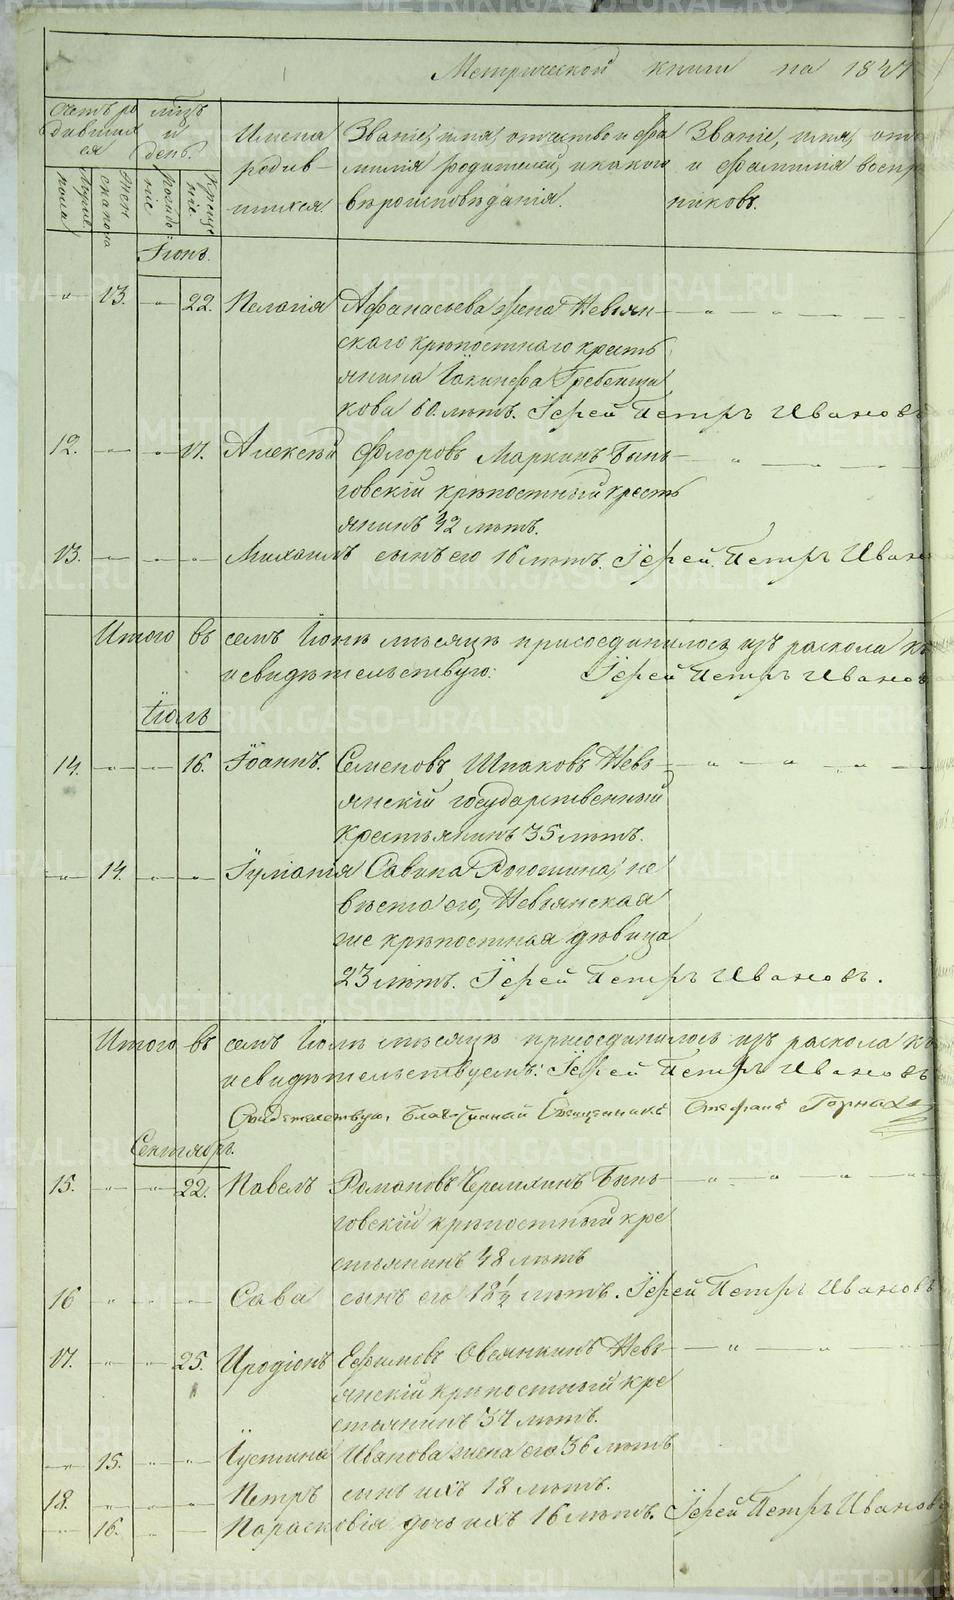 Метрической книги на 1847
Счетъ ро
дившихся
мѣсъ и день.
Имена родив-
шихся.
Званіе, имя, отчество и фа
милія родителей, и какого
вѣроисповѣданія.
Званіе, имя, отч
и фамилія воспр
никовъ.
Мужеска пола
Женска пола
рожденіе
крещеніе
Іюнь.
" 13. " 22. Пелагія Афанасьева жена Невьян-
скаго крѣпостнаго кресть
янина Іакинфа Гребенщи
кова 60 лѣтъ. Іерей Петръ Ивановъ
12. " " 17. Алексѣй Флоровъ Маркинъ Бынь-
говскій крѣпостный кресть
янинъ 42 лѣтъ.
13. " " " Михаилъ сынъ его 16 лѣтъ. Іерей Петръ Иванов
Итого въ семъ Іюнѣ мѣсяцѣ присоединилось изъ раскола къ
и свидѣтельствую: Іерей Петръ Иванов
Іюль
14. " " 16. Іоаннъ. Семеновъ Шпаковъ Невь
янскій государственный
крестьянинъ 35 лѣтъ.
" 14. " " Іуліанія Савина Рогожина, не
вѣста его, Невьянская
же крѣпостная дѣвица
23 лѣтъ. Іерей Петръ Ивановъ.
Итого въ семъ Іюлѣ мѣсяцѣ присоединилось изъ раскола къ
и свидѣтельствуемъ: Іерей Петръ Ивановъ
Свидѣтельствую, Благочинный Священникъ Стефанъ
Сентябрь.
15. " " 22. Павелъ Романовъ Черемхинъ Бынь-
говскій крѣпостный кре
стьянинъ 48 лѣтъ
16 " " " Сава сынъ его 18½ лѣтъ. Іерей Петръ Ивановъ
17. " " 25. Иродіонъ Ефимовъ Овсянкинъ Невь-
янскій крѣпостный кре
стьянинъ 37 лѣтъ.
" 15. " " Іустина Иванова жена его 36 лѣтъ
18. " " " Петръ сынъ ихъ 18 лѣтъ.
" 16. " " Парасковія дочь ихъ 16 лѣтъ. Іерей Петръ Иванов
METRIKI.GASO-URAL.RU